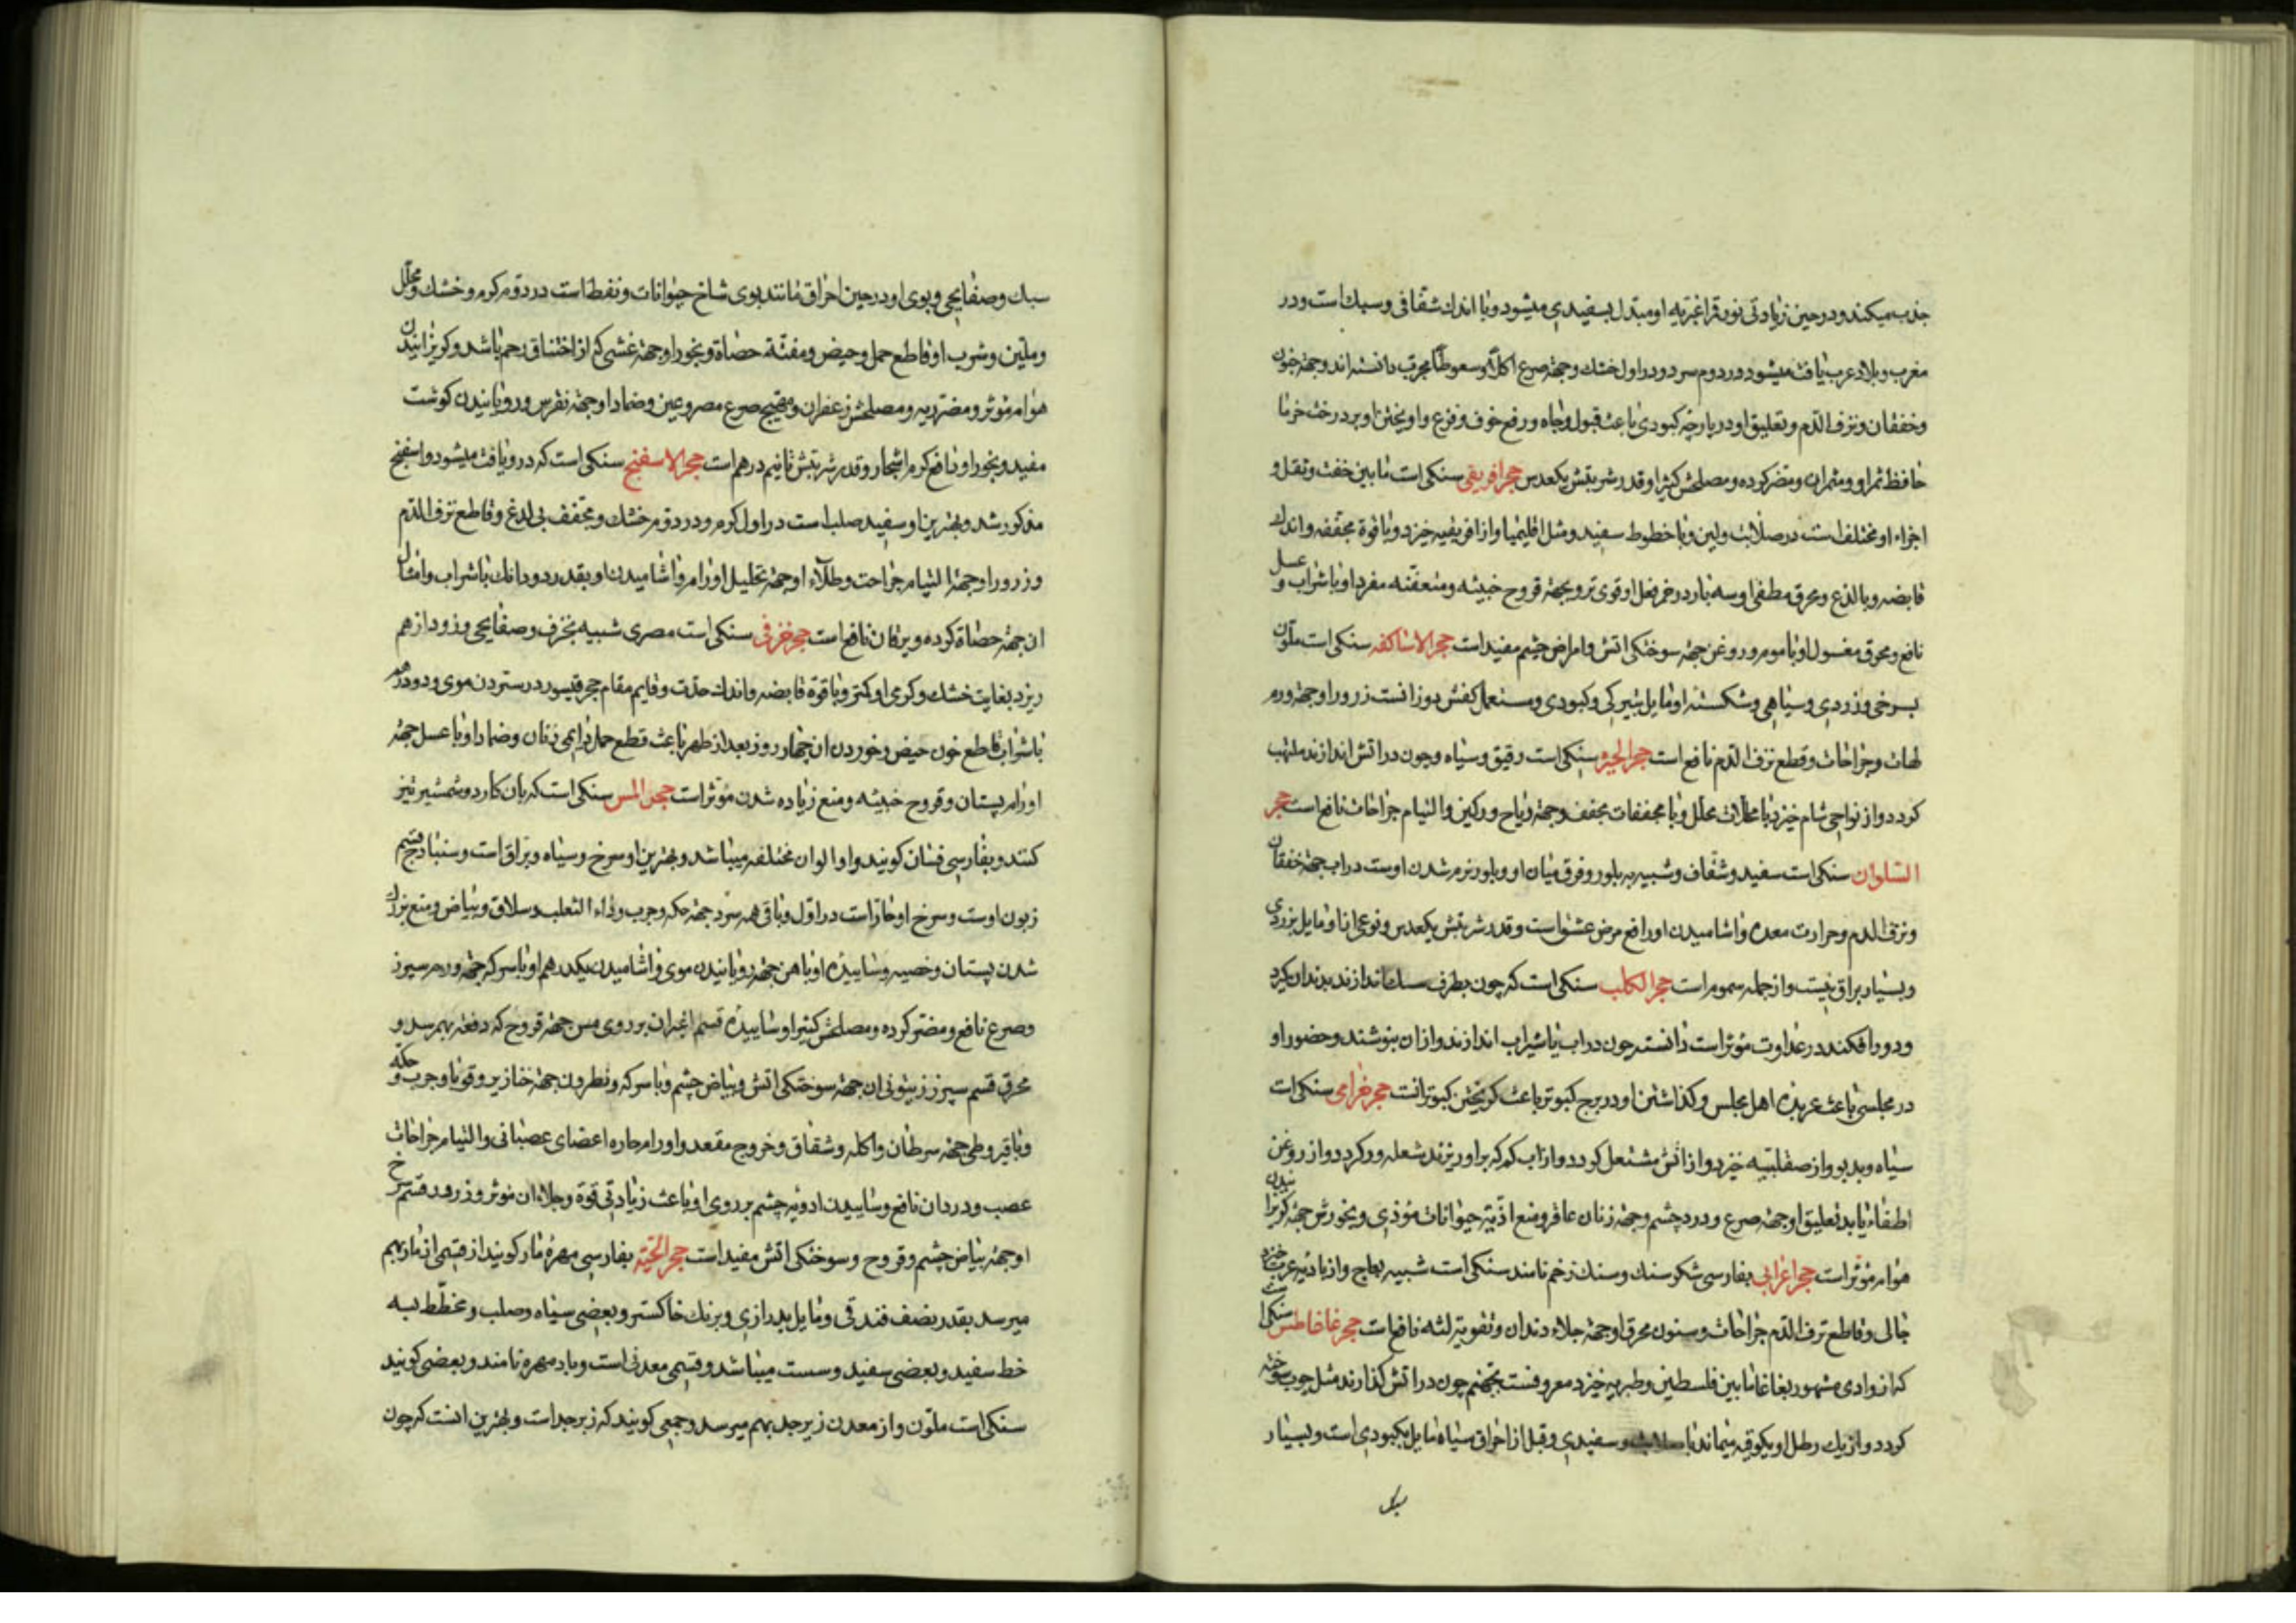 جذب میکند و در حین زیادتی نور قمر اغبریه او مبتدل بسفیدی میشود و با اندک شفافی و سبک است و در
مغرب و بلاد عرب یافت میشود در دوم سرد و در اول خشک و جهة صرع اکلاً و سعوطاً مجرب دانسته اند و جهة جنون
و خفقان و نزف الدم و تعلیق او در پارچه کبودی باعث قبول و جاه و رفع خوف و فزع و اویختن او بر درخت خرما
حافظ ثمر او و مضر کرده و مصلحش کثیرا و قدر شربتش یکعدس حجر افریقی سنکی است مابین خفت و ثقل و
اجزاء او مختلف است در صلابت و لین و با خطوط سفید و مثل اقلیمیا و از افریقیه خیزد و با قوة مجففه و اندک
قابضه و با لذع و محرق مطفی او سه بار در خمر فعل او قوی تر و بجهة قروح خبیثه و متعفنه مفردا و با شراب و عسل
نافع و محرق مغسول او با موم و روغن جهة سوختکی اتش و امراض چشم مفید است حجر الاساکفه سنکی است ملون
بسرخی و زردی و سیاهی و شکسته او مایل بتیرکی و کبودی و مستعمل کفش دوزانست ذرور او جهة ورم
لهات و جراحات و قطع نزف الدم نافع است حجر الحبر سنکی است رقیق و سیاه و چون در اتش اندازند ملتهب
کردد و از نواحی شام خیزد با محللات محلل و با مجففات مجفف و جهة ریاح ورکین و التیام جراحات نافع است حجر
السلوان سنکی است سفید و شفاف و شبیه به بلور و فرق میان او و بلور نرم شدن اوست در اب جهة خفقان
و نزف الدم و حرارت معده و اشامیدن او رافع مرض عشق است و قدر شربتش یکعدس و نوعی از او مایل بزردی
و بسیار براق نیست و از جمله سموم است حجر الکلب سنکی است که چون بطرف سک اندازند بدندان کیرد
و دور افکند در عداوت مؤثر است دانسته چون در اب یا شراب اندازند و از ان بنوشند و حضور او
در مجلسی باعث عربده اهل مجلس و کذاشتن او در برج کبوتر باعث کریختن کبوترانست حجر غرامی سنکی است
سیاه و بدبو و از صقلبیه خیزد و از اتش مشتعل کردد و از اب کم که بر او ریزند شعله ور کردد و از روغن
اطفاء یابد تعلیق او جهة صرع و درد چشم و جهة زنان عاقر و منع اذیت حیوانات موذی و بخورش جهة کریزانیدن
هوام مؤثر است حجر اعرابی بفارسی شکر سنک و سنک زخم نامند سنکی است شبیه بعاج و از بادیه عرب خیزد
جالی و قاطع نزف الدم جراحات و سنون محرق او جهة جلاء دندان و تقویت لثه نافع است حجر غاغاطس سنکی است
که از وادی مشهور بغاغا مابین فلسطین و طبریه خیزد معروفست بجهنم چون در اتش کذارند مثل چوب سوخته
کردد و از یک رطل او یکوقیه میماند با صلابت و سفیدی و قبل از احراق سیاه مایل بکبودی است و بسیار
سبک
سبک و صفایحی و بوی او در حین احراق مانند بوی شاخ حیوانات و نفط است در دوم کرم و خشک و محلل
و ملین و شرب او قاطع حمل و حیض و مفتت حصاة و بخور او جهة غشی که از اختناق رحم باشد و کریزانیدن
هوام مؤثر و مضر ریه و مصلحش زعفران و مهیج صرع مصروعین و ضماد او جهة نقرس و رویانیدن کوشت
مفید و بخور او دافع کرم اشجار و قدر شربتش تا نیم درهم است حجر الاسفنج سنکی است که در او یافت میشود و اسفنج
مذکور شد و بهترین او سفید صلب است در اول کرم و در دوم خشک و مجفف بی لدغ و قاطع نزف الدم
و ذرور او جهة التیام جراحت و طلاء او جهة تحلیل اورام و اشامیدن او بقدر دو دانک با شراب و امثال
ان جهة حصاة کرده و یرقان نافع است حجر خزفی سنکی است مصری شبیه بخزف و صفایحی و زود از هم
ریزد بغایت خشک و کرمی او کمتر و با قوة قابضه و اندک حدت و قایم مقام حجر قیسور در ستردن موی و دو درهم
با شراب قاطع خون حیض و خوردن ان چهار روز بعد از طهر باعث قطع حمل دایمی زنان و ضماد او با عسل جهة
اورام پستان و قروح خبیثه و منع زیاده شدن مؤثر است حجر المس سنکی است که بان کارد و شمشیر تیز
کنند و بفارسی فسان کویند و او الوان مختلفه میباشد و بهترین او سرخ و سیاه و براق است و سنبادج قسم
زبون اوست و سرخ او حار است در اول و باقی همه سرد جهة حکه و جرب و داء الثعلب و سلاق و بیاض و منع بزرک
شدن پستان و خصیه و ساییده او با هن جهة رویانیدن موی و اشامیدن یکدرهم او با سرکه جهة ورم سپرز
و صرع نافع و مضر کرده و مصلحش کثیرا و ساییده قسم اغبر ان بر روی مس جهة قروح که دفعة بهم رسد و
محرق قسم سبز زیتونی ان جهة سوختکی اتش و بیاض چشم و با سرکه و نطرون جهة خنازیر و قوبا و جرب و حکه
و با قیروطی جهة سرطان و اکله و شقاق و خروج مقعد و اورام حاره اعضای عصبانی و التیام جراحات
عصب و درد ان نافع و ساییدن ادویه چشم بر روی او باعث زیادتی قوة و جلاء ان مؤثر و ذرور قسم سرخ
او جهة بیاض چشم و قروح و سوختکی اتش مفید است حجر الحیة بفارسی مهره مار کویند از قسمی از مار بهم
میرسد بقدر نصف فندقی و مایل بدرازی و برنک خاکستر و بعضی سیاه و صلب و مخطط بسه
خط سفید و بعضی سفید و سست میباشد و قسمی معدنی است و پادمهره نامند و بعضی کویند
سنکی است ملون و از معدن زبرجد بهم میرسد و جمعی کویند که زبرجد است و بهترین انست که چون